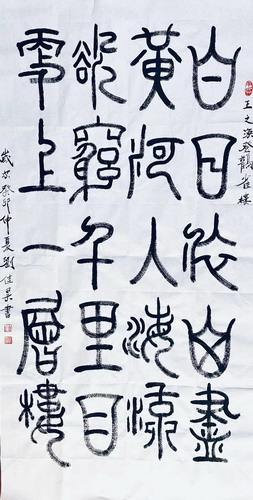 王之渙登鸛雀樓
白日依山盡
黃河入海流
欲窮千里目
更上一層樓
歲次癸卯仲夏劉書